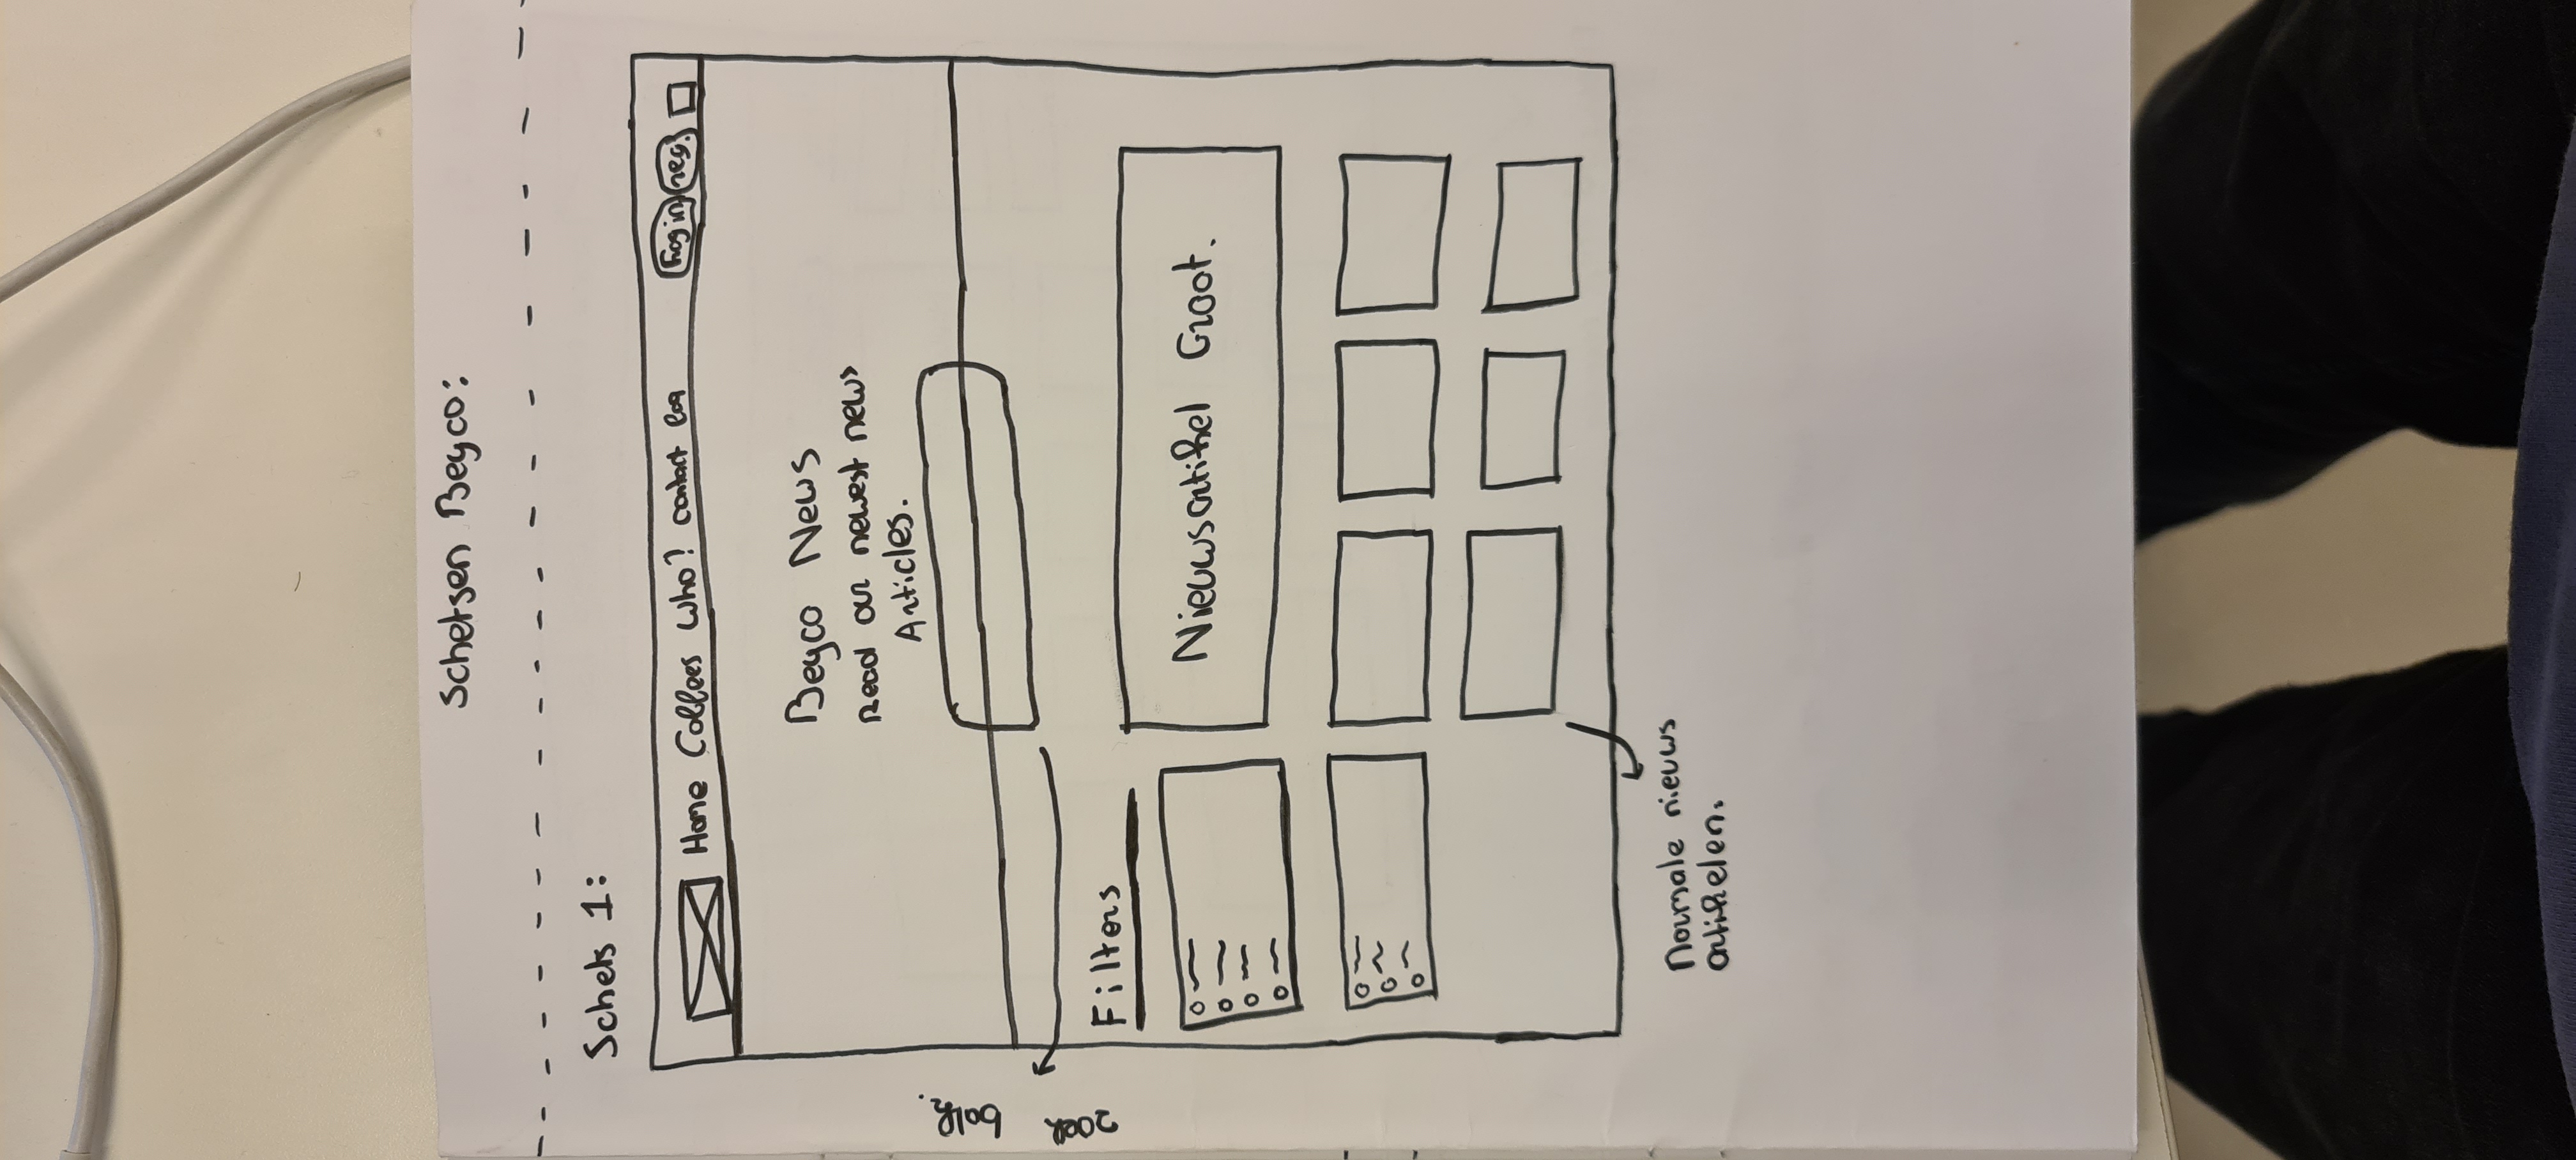 Schetsen Beyco:
Schets 1:
Home Coffees Who? contact log
Log in reg.
Beyco News
Read our newest news
Articles.
zoek balk.
Filters
Nieuwsartikel Groot.
Normale nieuws
artikelen.